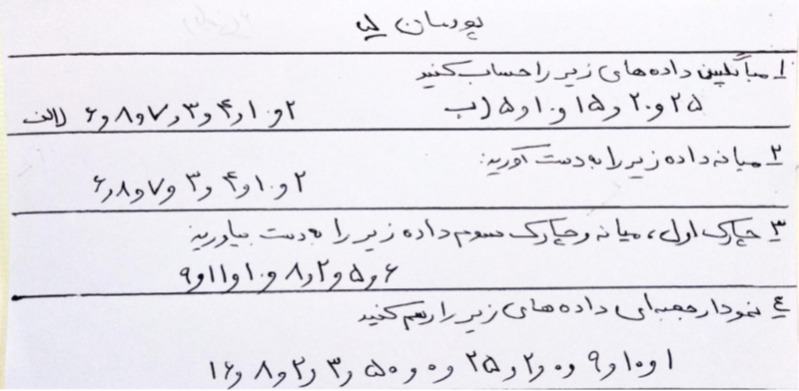 ۱ میانگین داده های زیر را حساب کنید
الف) ۶ و ۸ و ۷ و ۳ و ۴ و ۱۰ و ۲
ب) ۵ و ۱۰ و ۱۵ و ۲۰ و ۲۵
۲ میانه داده زیر را به دست آورید:
۶ و ۸ و ۷ و ۳ و ۴ و ۱۰ و ۲
۳ چارک اول، میانه و چارک سوم داده زیر را به دست بیاورید
۹ و ۱۱ و ۱۰ و ۸ و ۲ و ۵ و ۶
۴ نمودار جعبه ای داده های زیر را رسم کنید
۱۶ و ۸ و ۲ و ۳ و ۵۰ و ۰ و ۲۵ و ۲ و ۰ و ۹ و ۱۰ و ۱